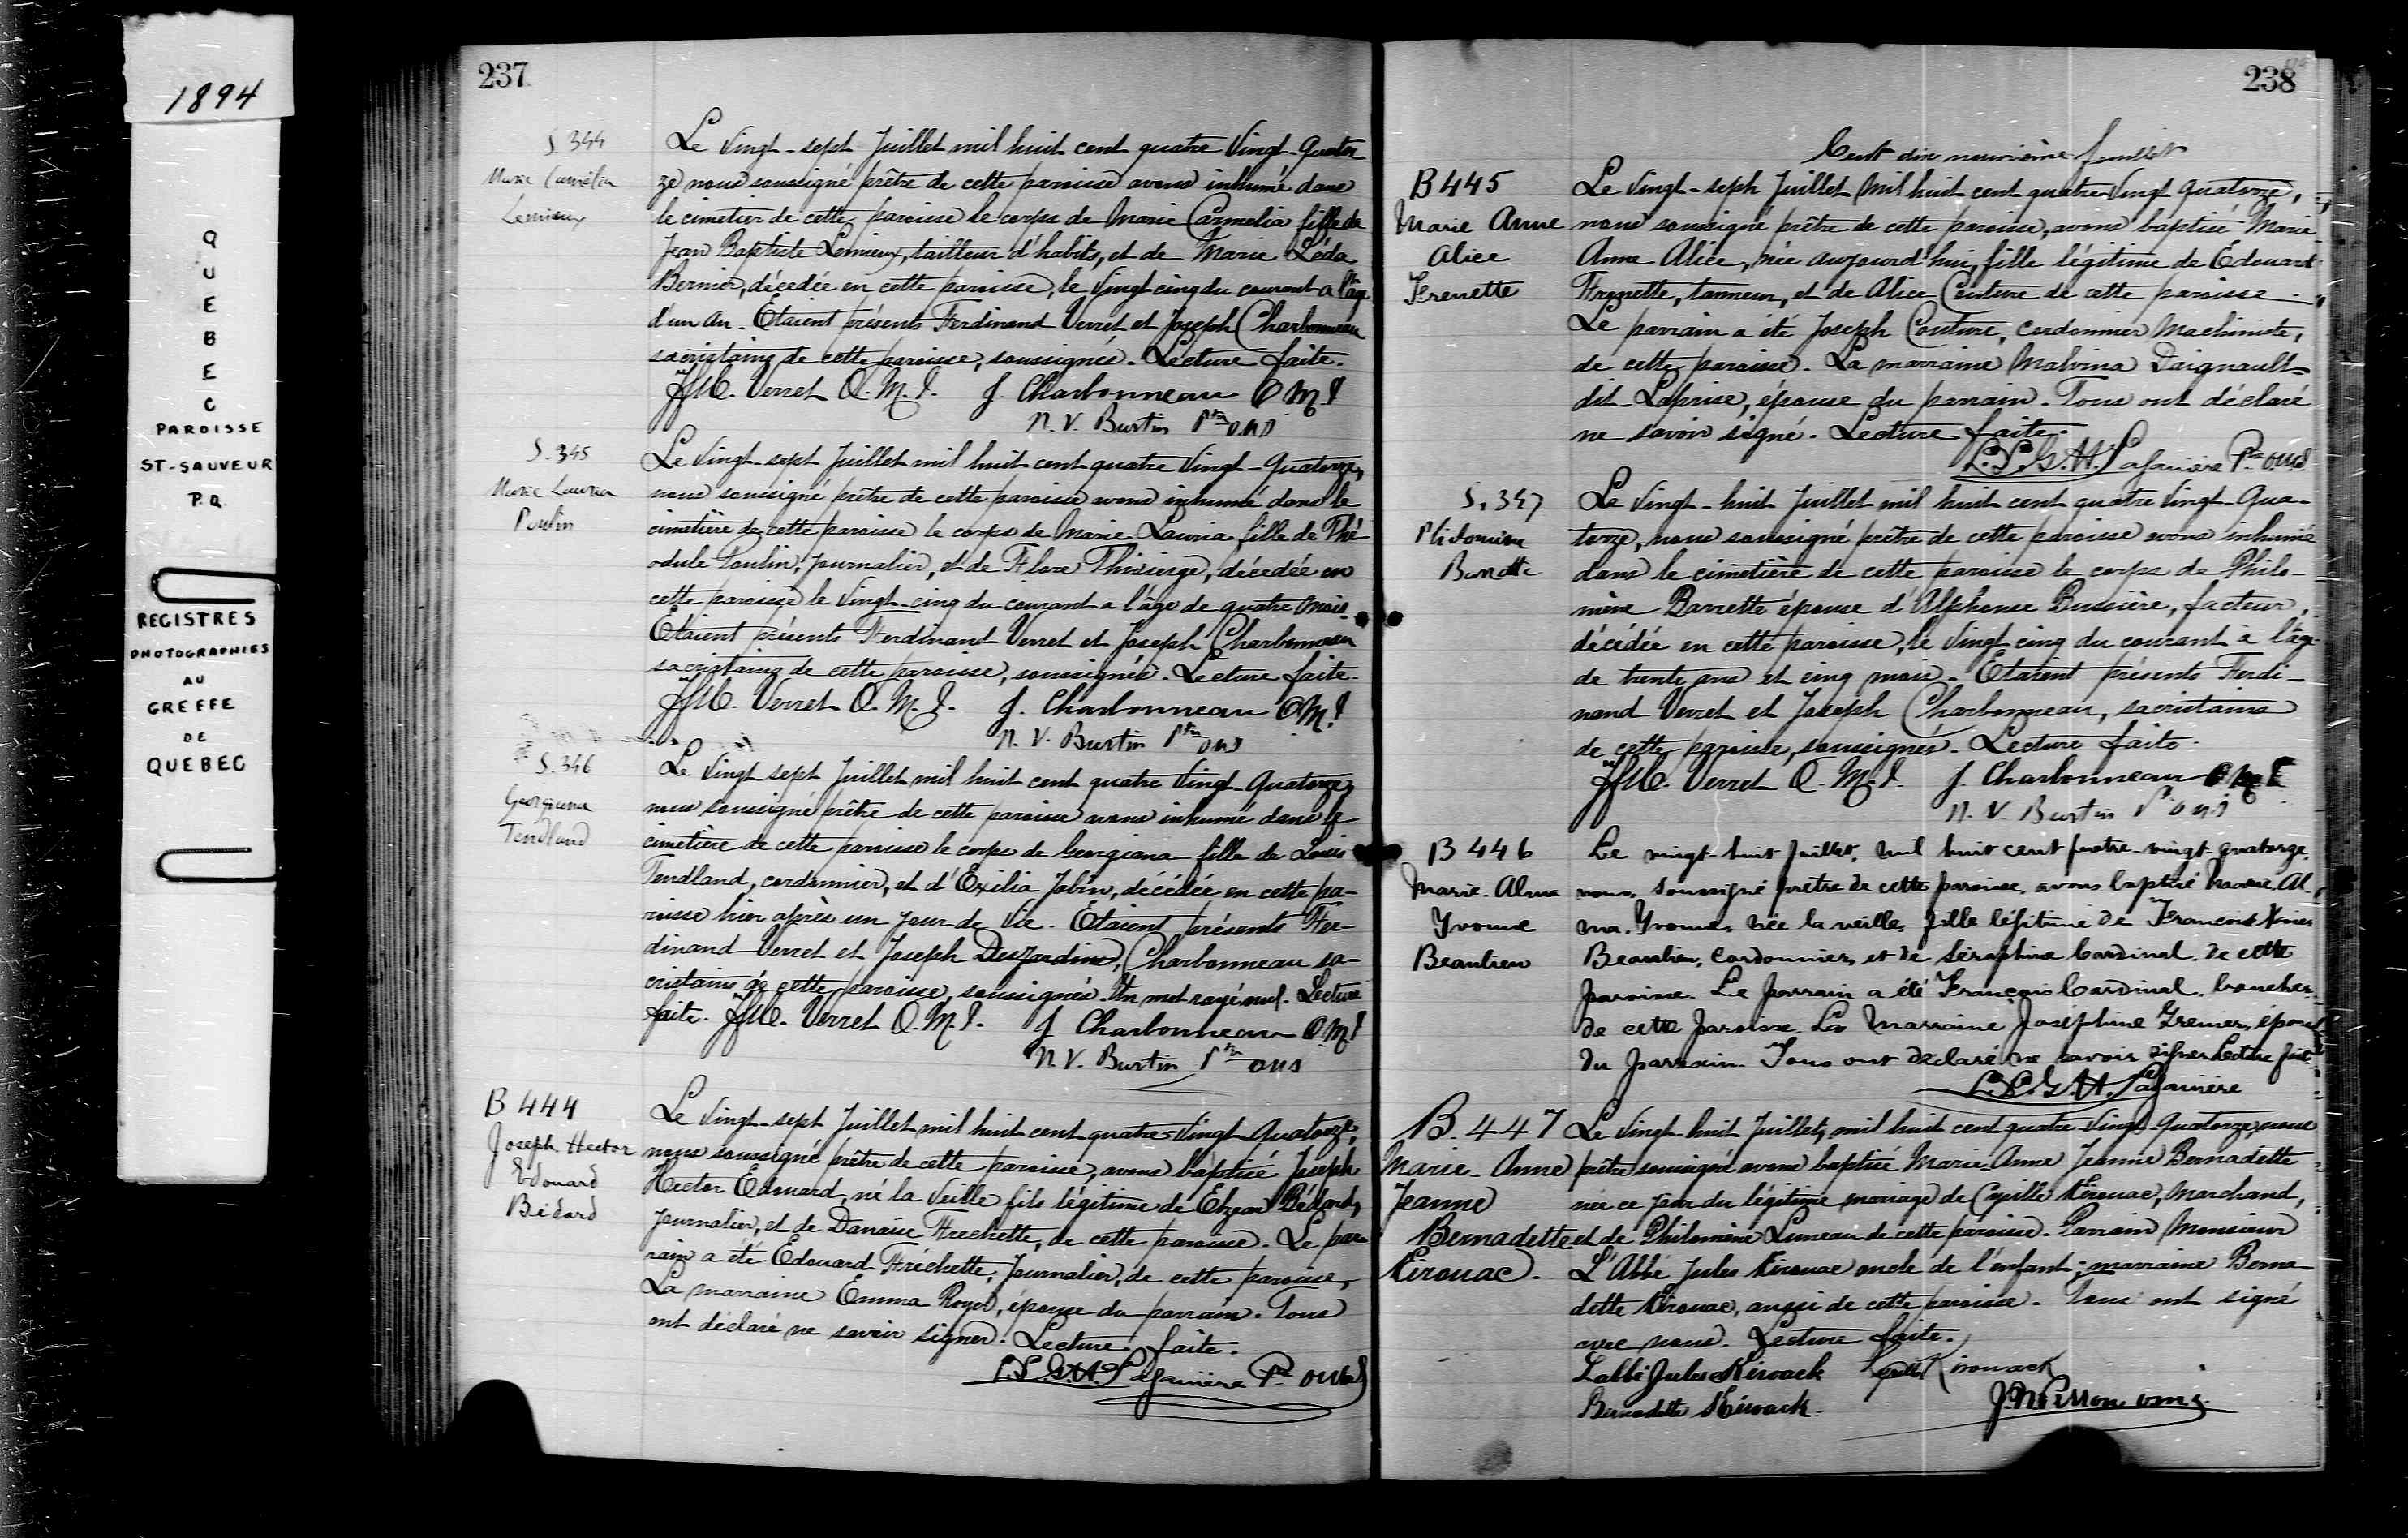 1894
QUEBEC
PAROISSE
ST-SAUVEUR
P.Q.
REGISTRES
PHOTOGRAPHIES
AU
GREFFE
DE
QUEBEC
237
S. 344
Marie Carmélia
Lemieux
Le vingt-sept Juillet mil huit cent quatre vingt-quator
ze nous soussigné prêtre de cette paroisse avons inhumé dans
le cimetier de cette paroisse le corps de Marie Carmelia fille de
Jean Baptiste Lemieux, tailleur d'habits, et de Marie Léda
Bernier, décedée en cette paroisse, le vingt cinq du courant a l'âge
d'un an. Etaient présents Ferdinand Verret et Joseph Charbonneau
sacristains de cette paroisse, soussignés. Lecture faite.
Verret O.M.I. J. Charbonneau O M I
N. V. Burtin Ptre OMI
S. 345
Marie Lauria
Poulin
Le vingt-sept Juillet mil huit cent quatre vingt-quatorze,
nous soussigné prêtre de cette paroisse avons inhumé dans le
cimetière de cette paroisse le corps de Marie Lauria fille de Thé-
odule Poulin, Journalier, et de Flore Thivierge, décédée en
cette paroisse le vingt-cinq du courant a l'âge de quatre mois.
Etaient présents Ferdinand Verret et Joseph Charbonneau
sacristains de cette paroisse, soussignés. Lecture faite.
Verret O.M.I. J. Charbonneau OMI
N. V. Burtin Ptre OMI
S. 346
Georgiana
Tendland
Le vingt sept Juillet mil huit cent quatre vingt-quatorze,
nous soussigné prêtre de cette paroisse avons inhumé dans le
cimetière de cette paroisse le corps de Georgiana fille de Louis
Tendland, cordonnier, et d'Exilia Jobin, décédée en cette pa-
roisse hier après un jour de vie. Etaient présents Fer-
dinand Verret et Joseph Desjardins, Charbonneau sa-
cristains de cette paroisse, soussignés. Un mot rayé nul. Lecture
faite. Verret O.M.I. J Charbonneau O.M.I
N. V. Burtin Ptre OMI
B 444
Joseph Hector
Edouard
Bédard
Le vingt-sept Juillet mil huit cent quatre-vingt quatorze,
nous soussigné prêtre de cette paroisse, avons baptisé Joseph
Hector Edouard, né la veille fils légitime de Elzear Bédard,
Journalier, et de Danaise Frechette, de cette paroisse. Le par-
rain a été Edouard Fréchette, Journalier, de cette paroisse,
La marraine Emma Royer, épouse du parrain. Tous
ont déclaré ne savoir signer. Lecture faite.
L.P.G.H. Lafrenière Ptre OMI
238
Cent dix neuvième feuillet
B 445
Marie Anne
Alice
Frenette
Le vingt-seph Juillet mil huit cent quatre vingt quatorze,
nous soussigné prêtre de cette paroisse, avons baptisé Marie
Anne Alice, née aujourd'hui, fille légitime de Edouard
Frenette, tanneur, et de Alice Couture de cette paroisse.
Le parrain a été Joseph Couture, cordonnier machiniste,
de cette paroisse. La marraine Malvina Daignault
dit-Laprise, épouse du parrain. Tous ont déclaré
ne savoir signé. Lecture faite.
L.P.G.H. Lafrenière Ptre OMI
S. 347
Philomène
Barrette
Le vingt-huit Juillet mil huit cent quatre vingt-qua-
torze, nous soussigné prêtre de cette paroisse avons inhumé
dans le cimetière de cette paroisse le corps de Philo-
mène Barrette épouse d'Alphonse Bussière, facteur,
décédée en cette paroisse, le vingt cinq du courant à l'âge
de trente ans et cinq mois. Etaient présents Ferdi-
nand Verret et Joseph Charbonneau, sacristains
de cette paroisse, soussignés. Lecture faite.
Verret O.M.I. J. Charbonneau OMI
N. V. Burtin Ptre OMI
B 446
Marie-Alma
Yvonne
Beaulieu
Le vingt-huit juillet, mil huit cent quatre-vingt-quatorze,
nous, soussigné prêtre de cette paroisse, avons baptisé Marie Al-
ma. Yvonne, née la veille, fille légitime de François Xavier
Beaulieu, cordonnier, et de Séraphine Cardinal, de cette
paroisse. Le parrain a été François Cardinal, boucher,
de cette paroisse. La marraine Joséphine Grenier, épouse
du parrain. Tous ont déclaré ne savoir signer Lecture faite.
L.P.G.H. Lafrenière
B. 447
Marie-Anne
Jeanne
Bernadette
Kirouac.
Le vingt huit Juillet, mil huit cent quatre-vingt-quatorze, nous
prêtre soussigné avons baptisé Marie Anne Jeanne Bernadette
née ce jour du légitime mariage de Cyrille Kirouac, Marchand,
et de Philomène Luneau de cette paroisse. Parrain Monsieur
L'Abbé Jules Kirouac oncle de l'enfant; marraine Berna-
dette Kirouac, aussi de cette paroisse. Tous ont signé
avec nous. Lecture faite.
L'abbé Jules Kirouack Cyrille Kirouack
Bernadette Kirouack.